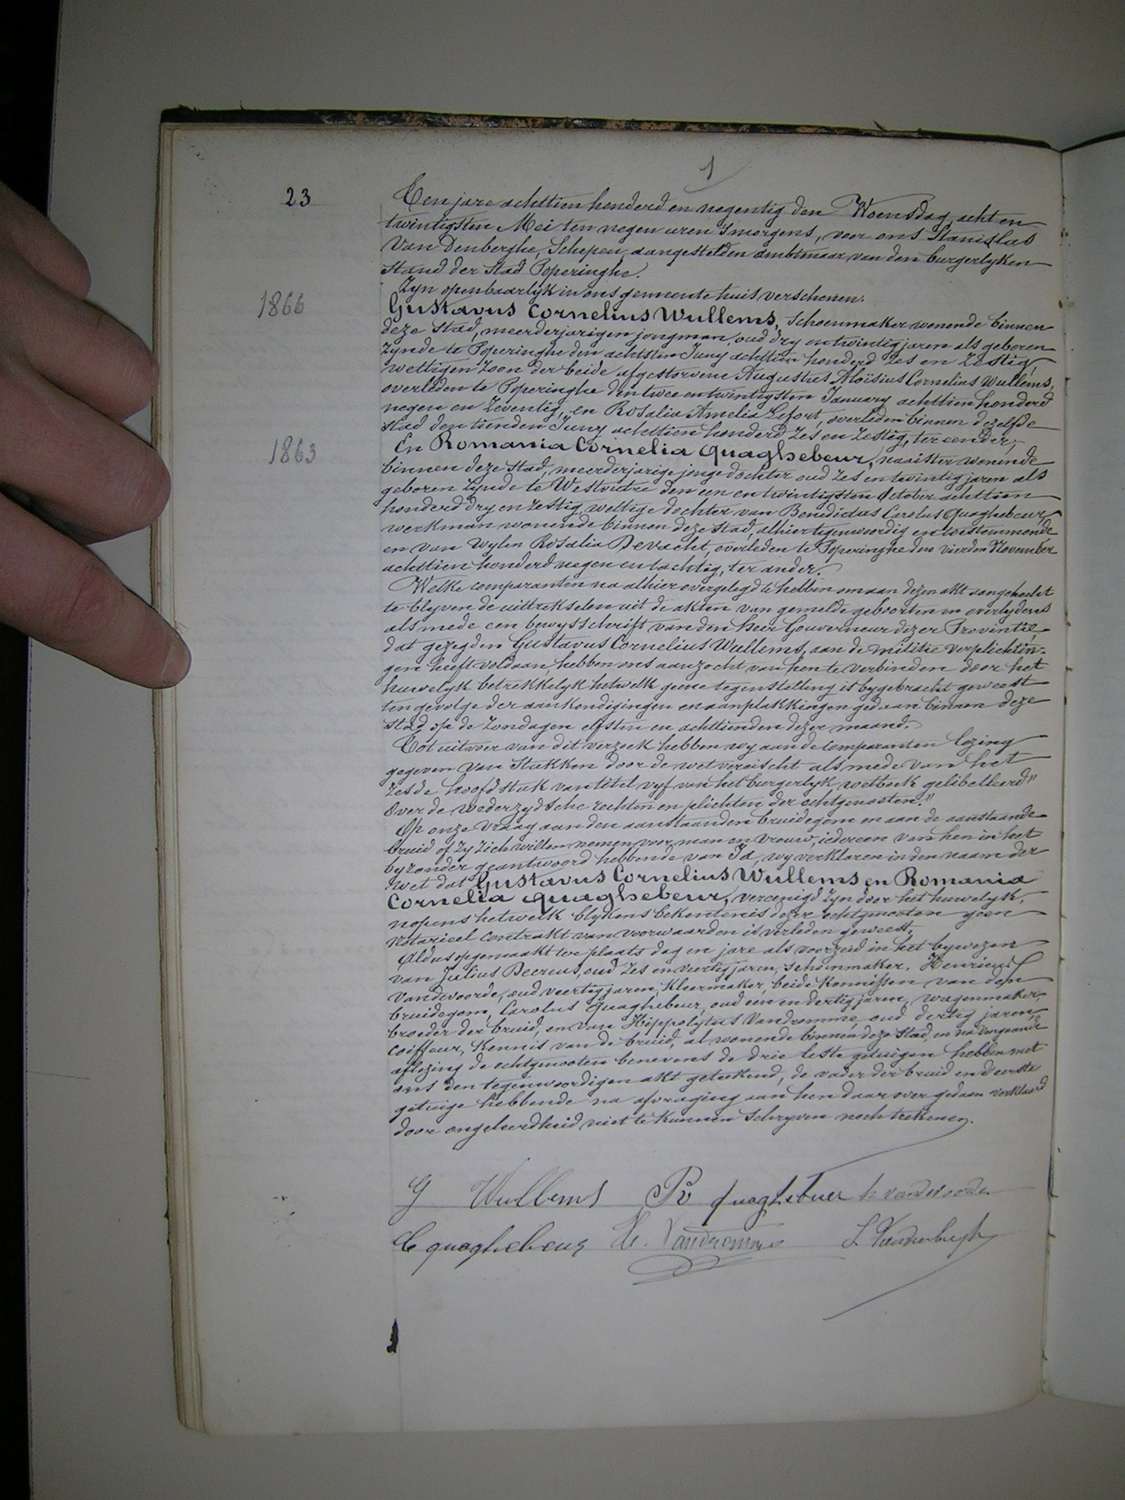 1
23
Ten jare achttien honderd en negentig den Woensdag, acht en
twintigsten Mei ten negen uren s'morgens, voor ons Stanislas
Van Denberghe, Schepen, aangestelden ambtenaar van den burgerlyken
Stand der Stad Poperinghe.
Zyn openbaarlyk in ons gemeente huis verschenen:
1866
Gustavus Cornelius Wullems, schoenmaker wonende binnen
deze stad, meerderjarigen jongman, oud dry en twintig jaren als geboren
zynde te Poperinghe den achtsten Juny achttien honderd zes en zestig
wettigen zoon der beide afgestorvene Augustus Aloïsius Cornelius Wullems,
overleden te Poperinghe den twee en twintigsten January achttien honderd
negen en zeventig, en Rosalia Amelia Lefort, overleden binnen dezelfde
stad den tienden Juny achttien honderd zes en zestig, ter eender;
1863
En Romania Cornelia Quaghebeur, naaister wonende
binnen deze stad, meerderjarige jonge dochter oud zes en twintig jaren als
geboren zynde te Westvletre den een en twintigsten October achttien
honderd dry en zestig, wettige dochter van Benedictus Carolus Quaghebeur
werkman wonende binnen deze stad, alhier tegenwoordig en toestemmende
en van wylen Rosalia Devacht, overleden te Poperinghe den vierden November
achttien honderd negen en tachtig, ter ander.
Welke comparanten na alhier overgelegd te hebben om aan dezen akt aangehecht
te blyven de uittrekselen uit de akten van gemelde geboorten en overlydens
alsmede een bewysschrift van den heer Gouverneur dezer Provintie
dat gezegden Gustavus Cornelius Wullems, aan de militie verplichtin-
gen heeft voldaan hebben ons aanzocht van hen te verbinden door het
huwelyk betrekkelyk hetwelk geene tegenstelling is bygebracht geweest
ten gevolge der aankondigingen en aanplakkingen gedaan binnen deze
stad op de zondagen elfsten en achttienden dezer maand.
Tot uitvoer van dit verzoek hebben wy aan de comparanten lezing
gegeven van stukken door de wet vereischt alsmede van het
zesde hoofdstuk van titel vyf van het burgerlyk wetboek gelibelleerd"
"Over de wederzydsche rechten en plichten der echtgenooten."
Op onze vraag aan den aanstaanden bruidegom en aan de aanstaande
bruid of zy zich willen nemen voor man en vrouw, iedereen van hen in het
byzonder geantwoord hebbende van Ja, wy verklaren in den naam der
wet dat Gustavus Cornelius Wullems en Romania
Cornelia Quaghebeur, vereenigd zyn door het huwelyk,
nopens hetwelk blykens bekentenis dezer echtgenooten geen
notarieel contrakt van voorwaarden is verleden geweest.
Aldus opgemaakt te plaats dag en jare als voorzeid in het bywezen
van Julius Decreus, oud zes en veertig jaren, schoenmaker, Henricus
Vandevoorde, oud veertig jaren, kleermaker, beide kennissen van den
bruidegom, Carolus Quaghebeur, oud een en dertig jaren, wagenmaker,
broeder der bruid, en van Hippolytus Vandromme oud dertig jaren
coiffeur, kennis van de bruid, al wonende binnen deze stad, en na voorgaande
aflezing de echtgenooten benevens de drie leste getuigen hebben met
ons den tegenwoordigen akt geteekend, de vader der bruid en d'eerste
getuige hebbende na afvraging aan hen daar over gedaan verklaard
door ongeleerdheid niet te kunnen schryven noch teekenen.
G Wullems R quaghebuer h vandevoorde
C quaghebeur H. Vandromme S. Vandenberghe